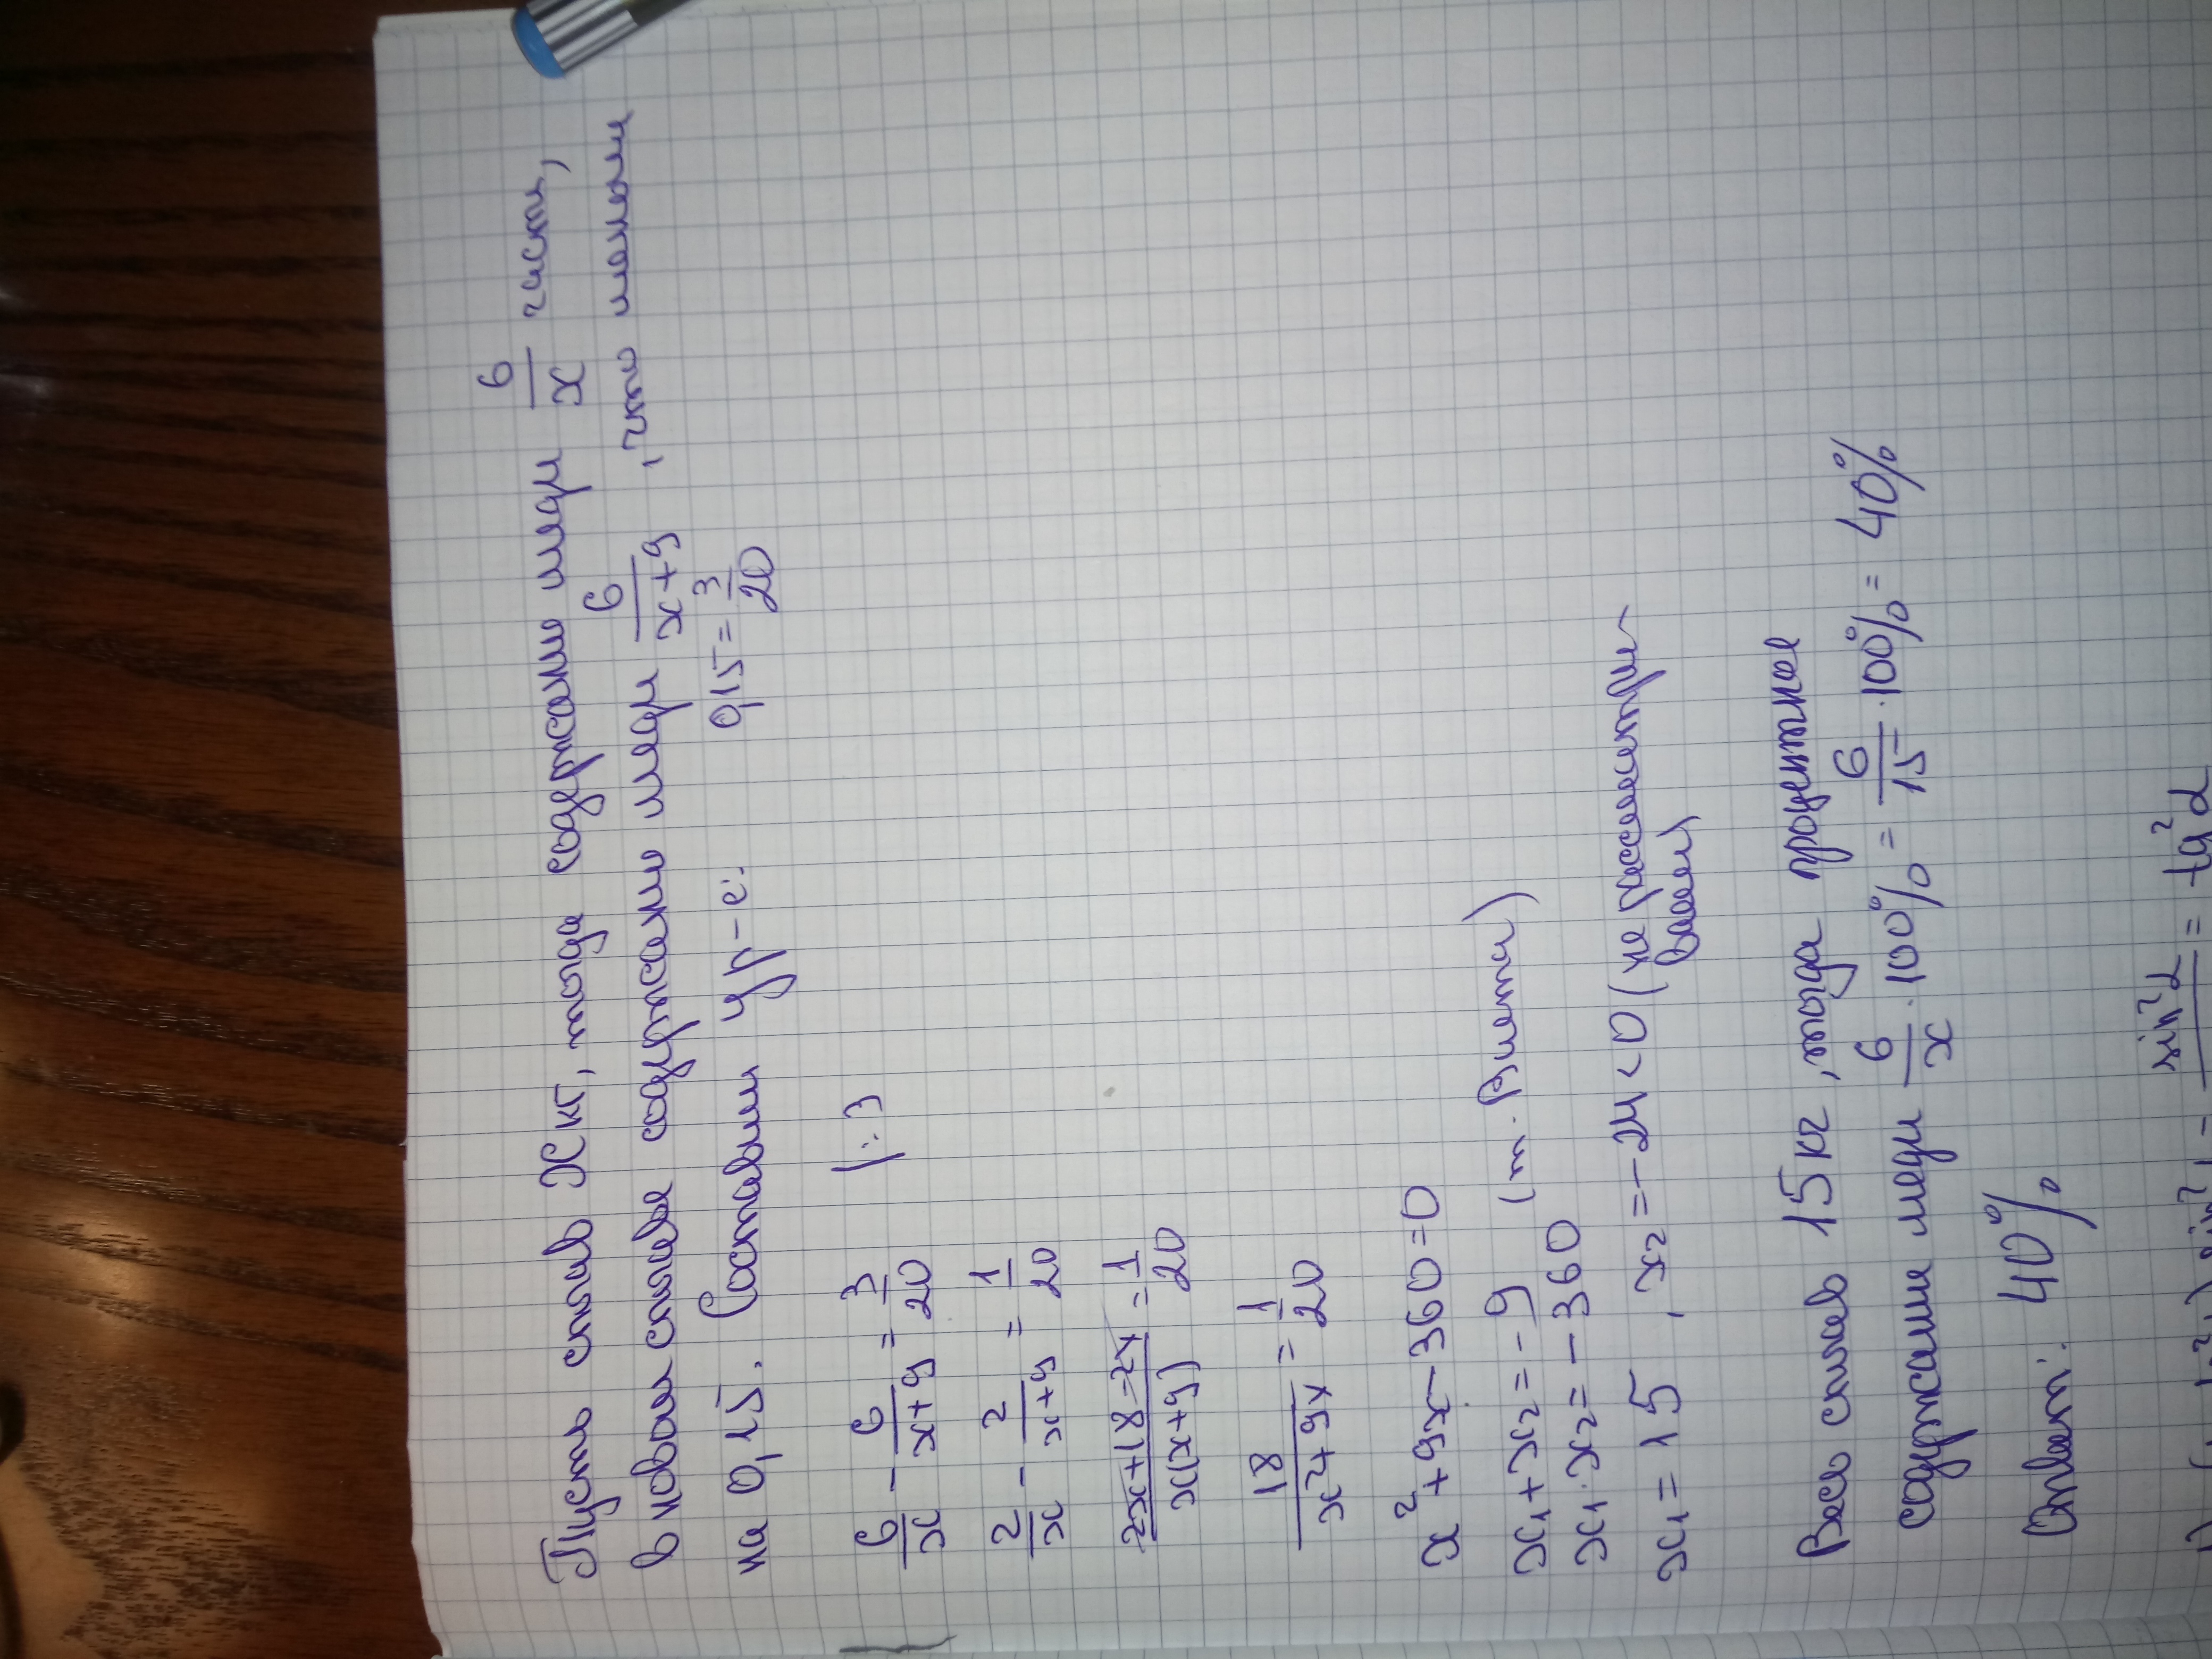 Пусть сплав x кг, тогда содержание меди 6/x части,
в новом сплаве содержание меди 6/(x+9), что меньше
на 0,15. Составим ур-е: 0,15 = 3/20
6/x - 6/(x+9) = 3/20 |:3
2/x - 2/(x+9) = 1/20
(2x+18-2x)/(x(x+9)) = 1/20
18/(x²+9x) = 1/20
x²+9x-360=0
x₁+x₂=-9 (т. Виета)
x₁·x₂=-360
x₁=15, x₂=-24<0 (не рассматри-
ваем)
Весь сплав 15 кг, тогда процентное
содержание меди 6/x · 100% = 6/15 · 100% = 40%
Ответ: 40%
sin²α = tg²α